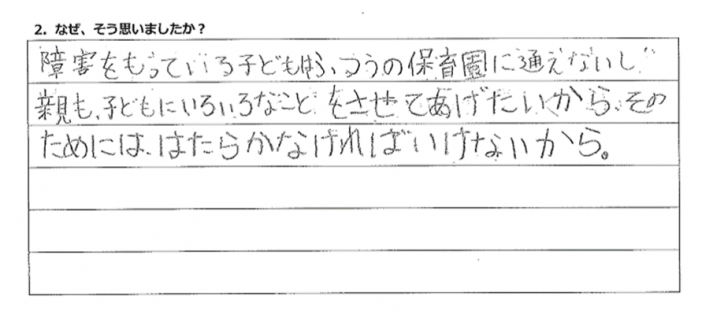 2. なぜ、そう思いましたか？
障害をもっている子どもは、ふつうの保育園に通えないし
親も、子どもにいろいろなことをさせてあげたいから、その
ためには、はたらかなければいけないから。